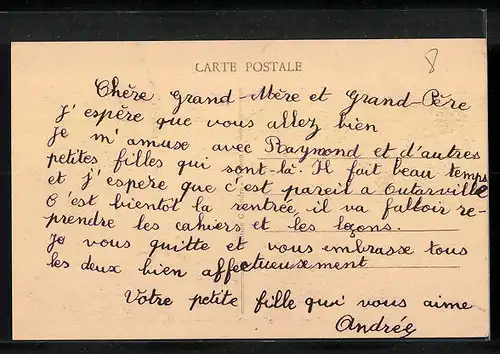 CARTE POSTALE
8
Chère Grand-Mère et Grand-Père
J'espère que vous allez bien
Je m'amuse avec Raymond et d'autres
petites filles qui sont-là. Il fait beau temps
et j'espère que c'est pareil à Outarville
C'est bientôt la rentrée, il va falloir re-
prendre les cahiers et les leçons.
Je vous quitte et vous embrasse tous
les deux bien affectueusement
Votre petite fille qui vous aime
Andrée